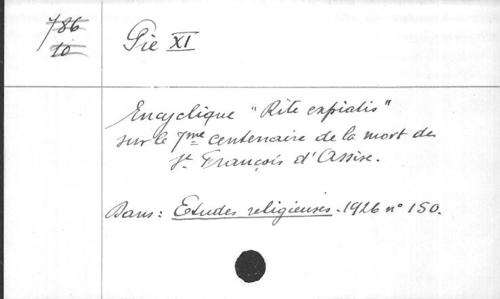 786
10
Pie XI
Encyclique "Rite expiatis"
sur le 7me centenaire de la mort de
St François d'Assise.
Dans: Etudes religieuses. 1926 n° 150.